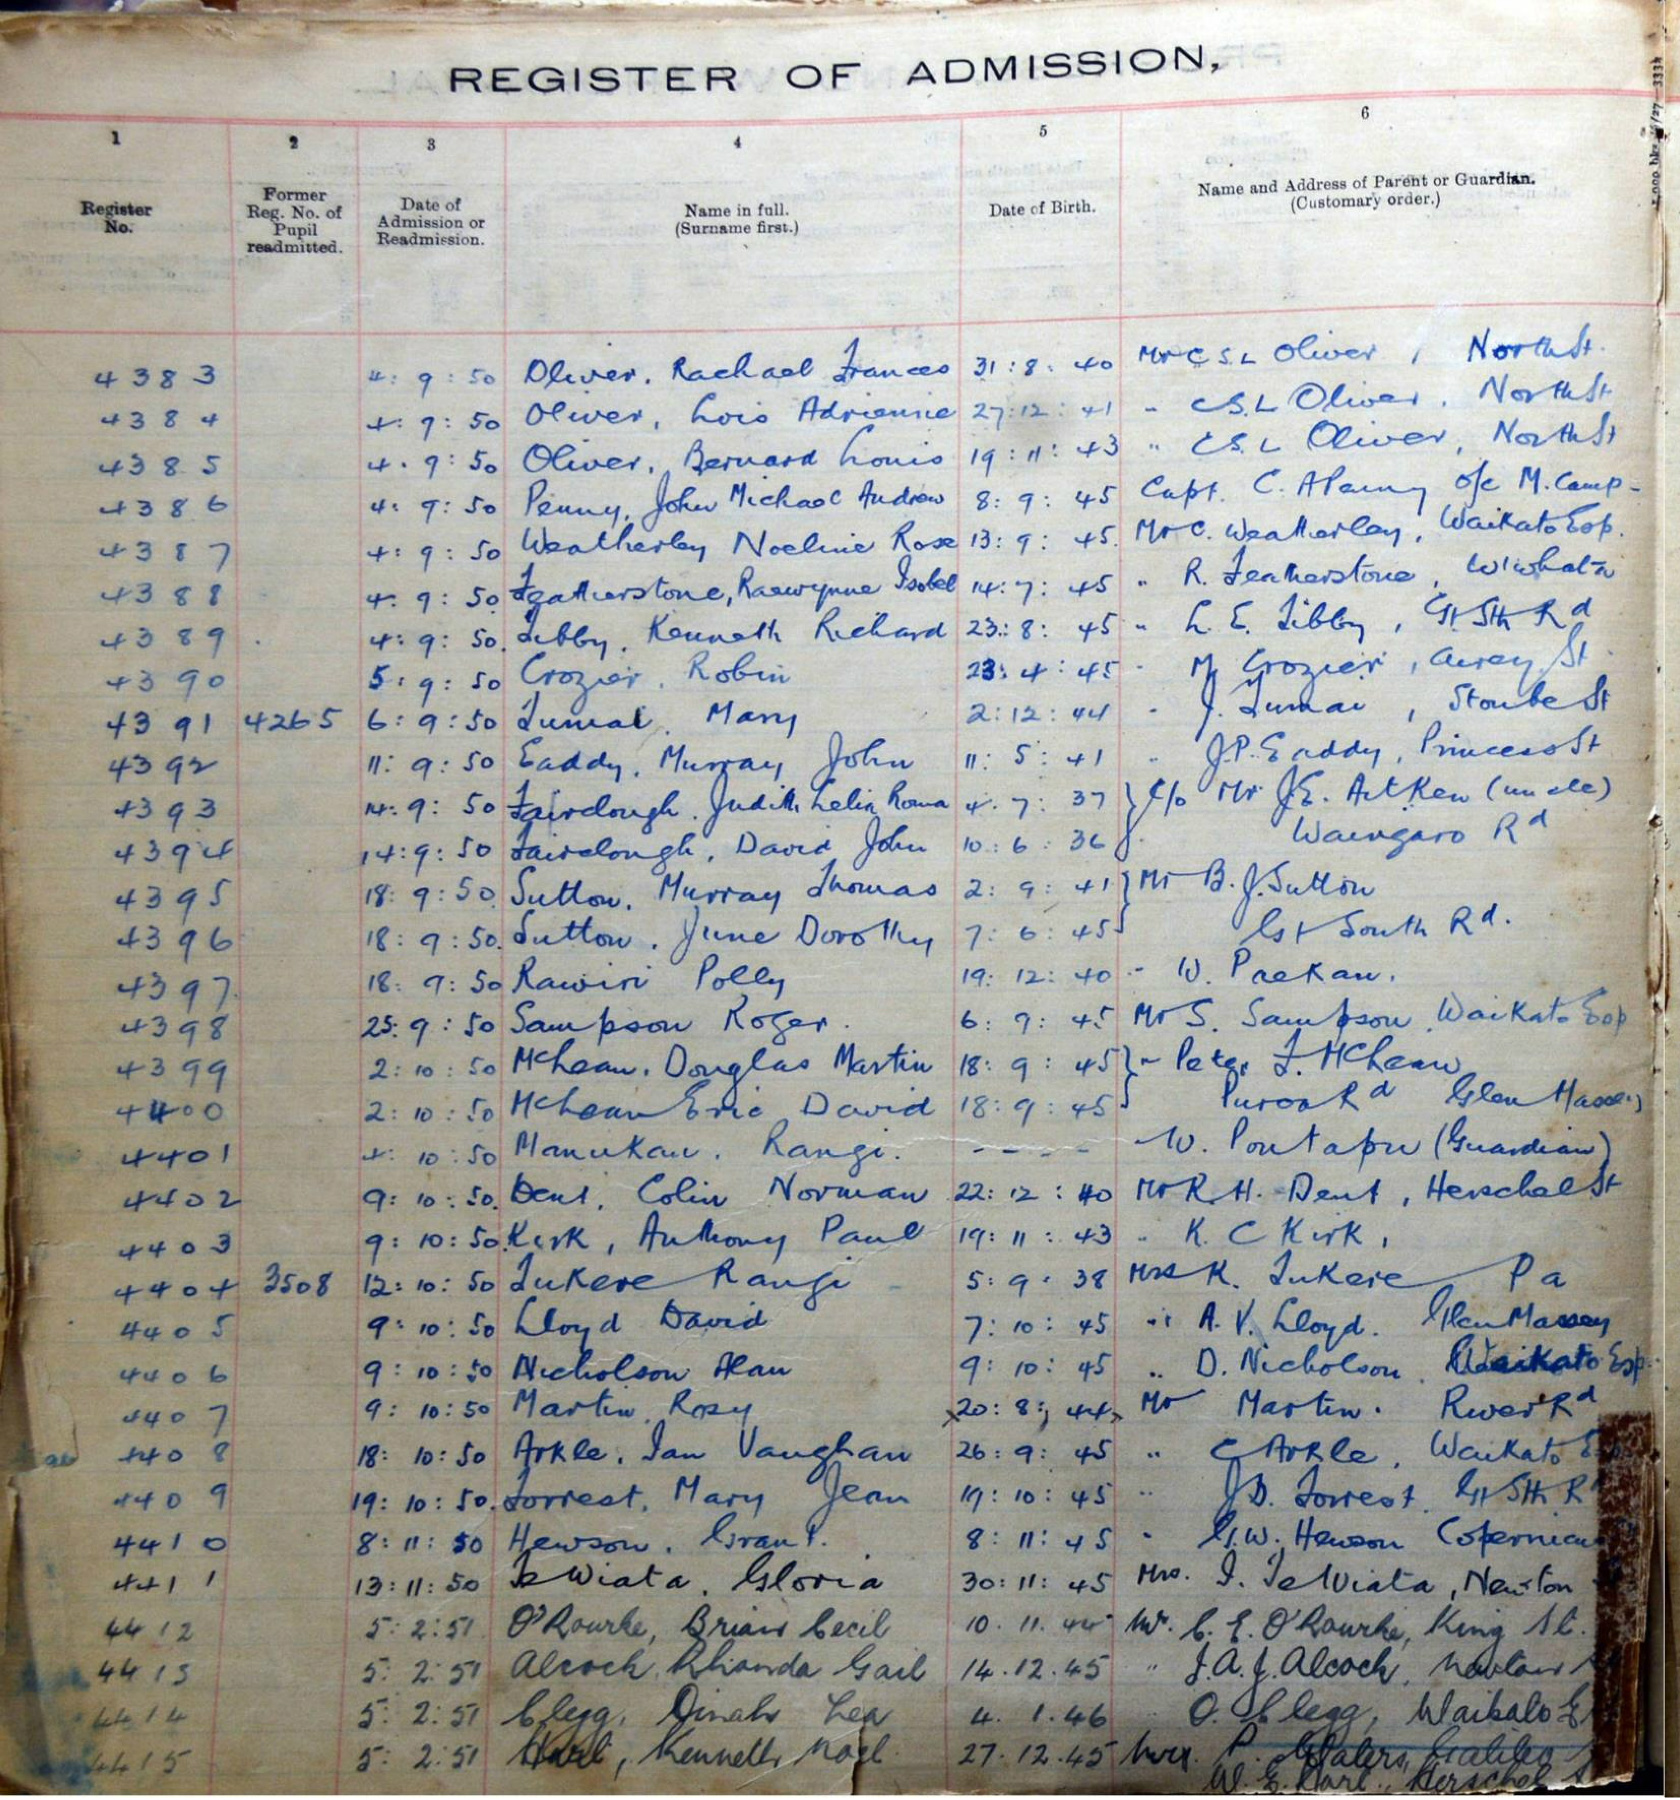 REGISTER OF ADMISSION,
1 2 3 4 5 6
Register No. Former Reg. No. of Pupil readmitted. Date of Admission or Readmission. Name in full. (Surname first.) Date of Birth. Name and Address of Parent or Guardian. (Customary order.)
4383 4:9:50 Oliver, Rachael Frances 31:8:40 Mr C S. L Oliver, North St.
4384 4:9:50 Oliver, Lois Adrienne 27:12:41 " C S. L Oliver, North St
4385 4.9:50 Oliver, Bernard Louis 19:11:43 " C S. L Oliver, North St
4386 4:9:50 Penny, John Michael Andrew 8:9:45 Capt. C. A Penny o/c M. Camp-
4387 4:9:50 Weatherley Noeline Rose 13:9:45. Mr C. Weatherley, Waikato Esp.
4388 4:9:50 Featherstone, Raewynne Isobel 14:7:45 " R. Featherstone,
4389 4:9:50. Libby, Kenneth Richard 23:8:45 " L. E. Libby, Gt Sth Rd
4390 5:9:50 Crozier, Robin 23:4:45 " M. Crozier, Airey St
4391 4265 6:9:50 Tumai, Mary 2:12:44 " J. Tumai,
4392 11:9:50 Eaddy, Murray John 11:5:41 " J. P. Eaddy, Princess St
4393 14:9:50 Fairclough, Judith Roma 4.7:37 } c/o Mr J. E. Aitken (uncle)
4394 14:9:50 Fairclough, David John 10:6:36 } Waingaro Rd
4395 18:9:50 Sutton, Murray Thomas 2:9:41 } Mr B. J. Sutton
4396 18:9:50. Sutton, June Dorothy 7:6:45 } Gt South Rd.
4397 18:9:50 Rawiri Polly 19:12:40 " W. Paekau.
4398 25:9:50 Sampson Roger. 6:9:45 Mr S. Sampson, Waikato Esp
4399 2:10:50 McLean, Douglas Martin 18:9:45 } " Peter F. McLean
4400 2:10:50 McLean Eric David 18:9:45 } Rd Glen Massey
4401 4:10:50 Manukau, Rangi. - - - - W. Poutapu (Guardian)
4402 9:10:50. Dent, Colin Norman 22:12:40 Mr R. H. Dent, Herschel St
4403 9:10:50. Kirk, Anthony Paul 19:11:43 " K. C Kirk,
4404 3508 12:10:50 Tukere Rangi 5:9:38 Mrs K. Tukere Pa
4405 9:10:50 Lloyd David 7:10:45 " A. V. Lloyd. Glen Massey
4406 9:10:50 Nicholson Alan 9:10:45 " D. Nicholson, Waikato Esp.
4407 9:10:50 Martin, Rosy x20:8:44x Mr Martin. River Rd
4408 18:10:50 Arkle, Ian Vaughan 26:9:45 " C Arkle, Waikato
4409 19:10:50. Forrest, Mary Jean 19:10:45 " J. D. Forrest, Gt Sth R
4410 8:11:50 Hewson, Grant. 8:11:45 " G. W. Hewson Copernicus
4411 13:11:50 TeWiata, Gloria 30:11:45 Mrs. I. TeWiata, Newton
4412 5:2:51 O'Rourke, Brian Cecil 10.11.44 Mr. C. E. O'Rourke, King St.
4413 5:2:51 Alcock, Rhonda Gail 14.12.45 " J. A. J. Alcock, Newton
4414 5:2:51 Clegg, Dinah Lea 4.1.46 " O. Clegg, Waikato E
4415 5:2:51 Karl, Kenneth Noel 27.12.45 Mrs. P. Galileo
W. E. Karl, Herschel S